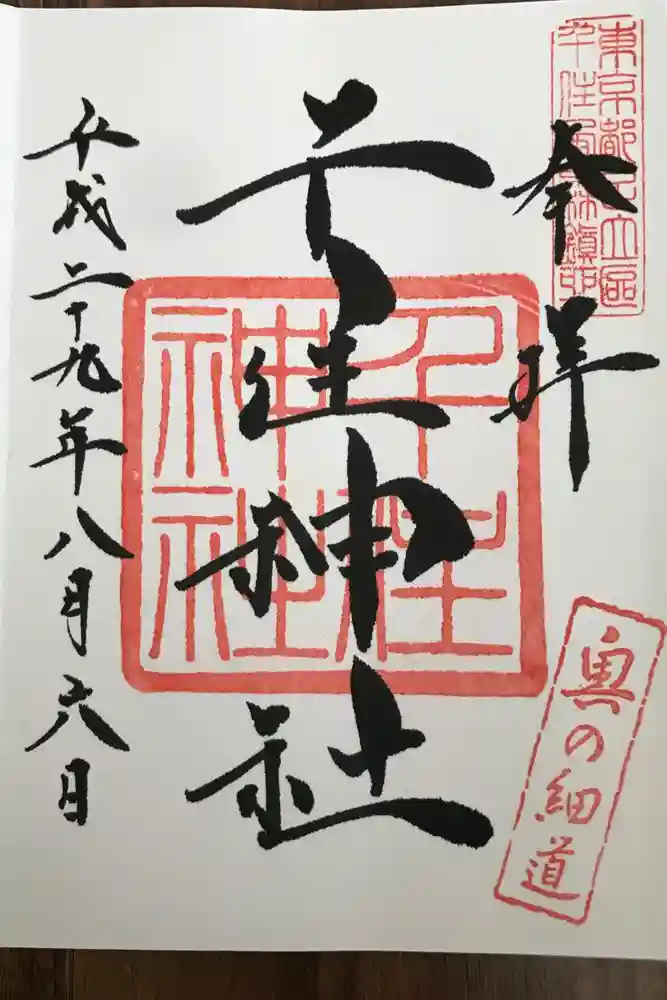 東京都足立區
千住宮元町鎮守
奉拝
千住神社
千住
神社
奥の細道
平成二十九年八月六日